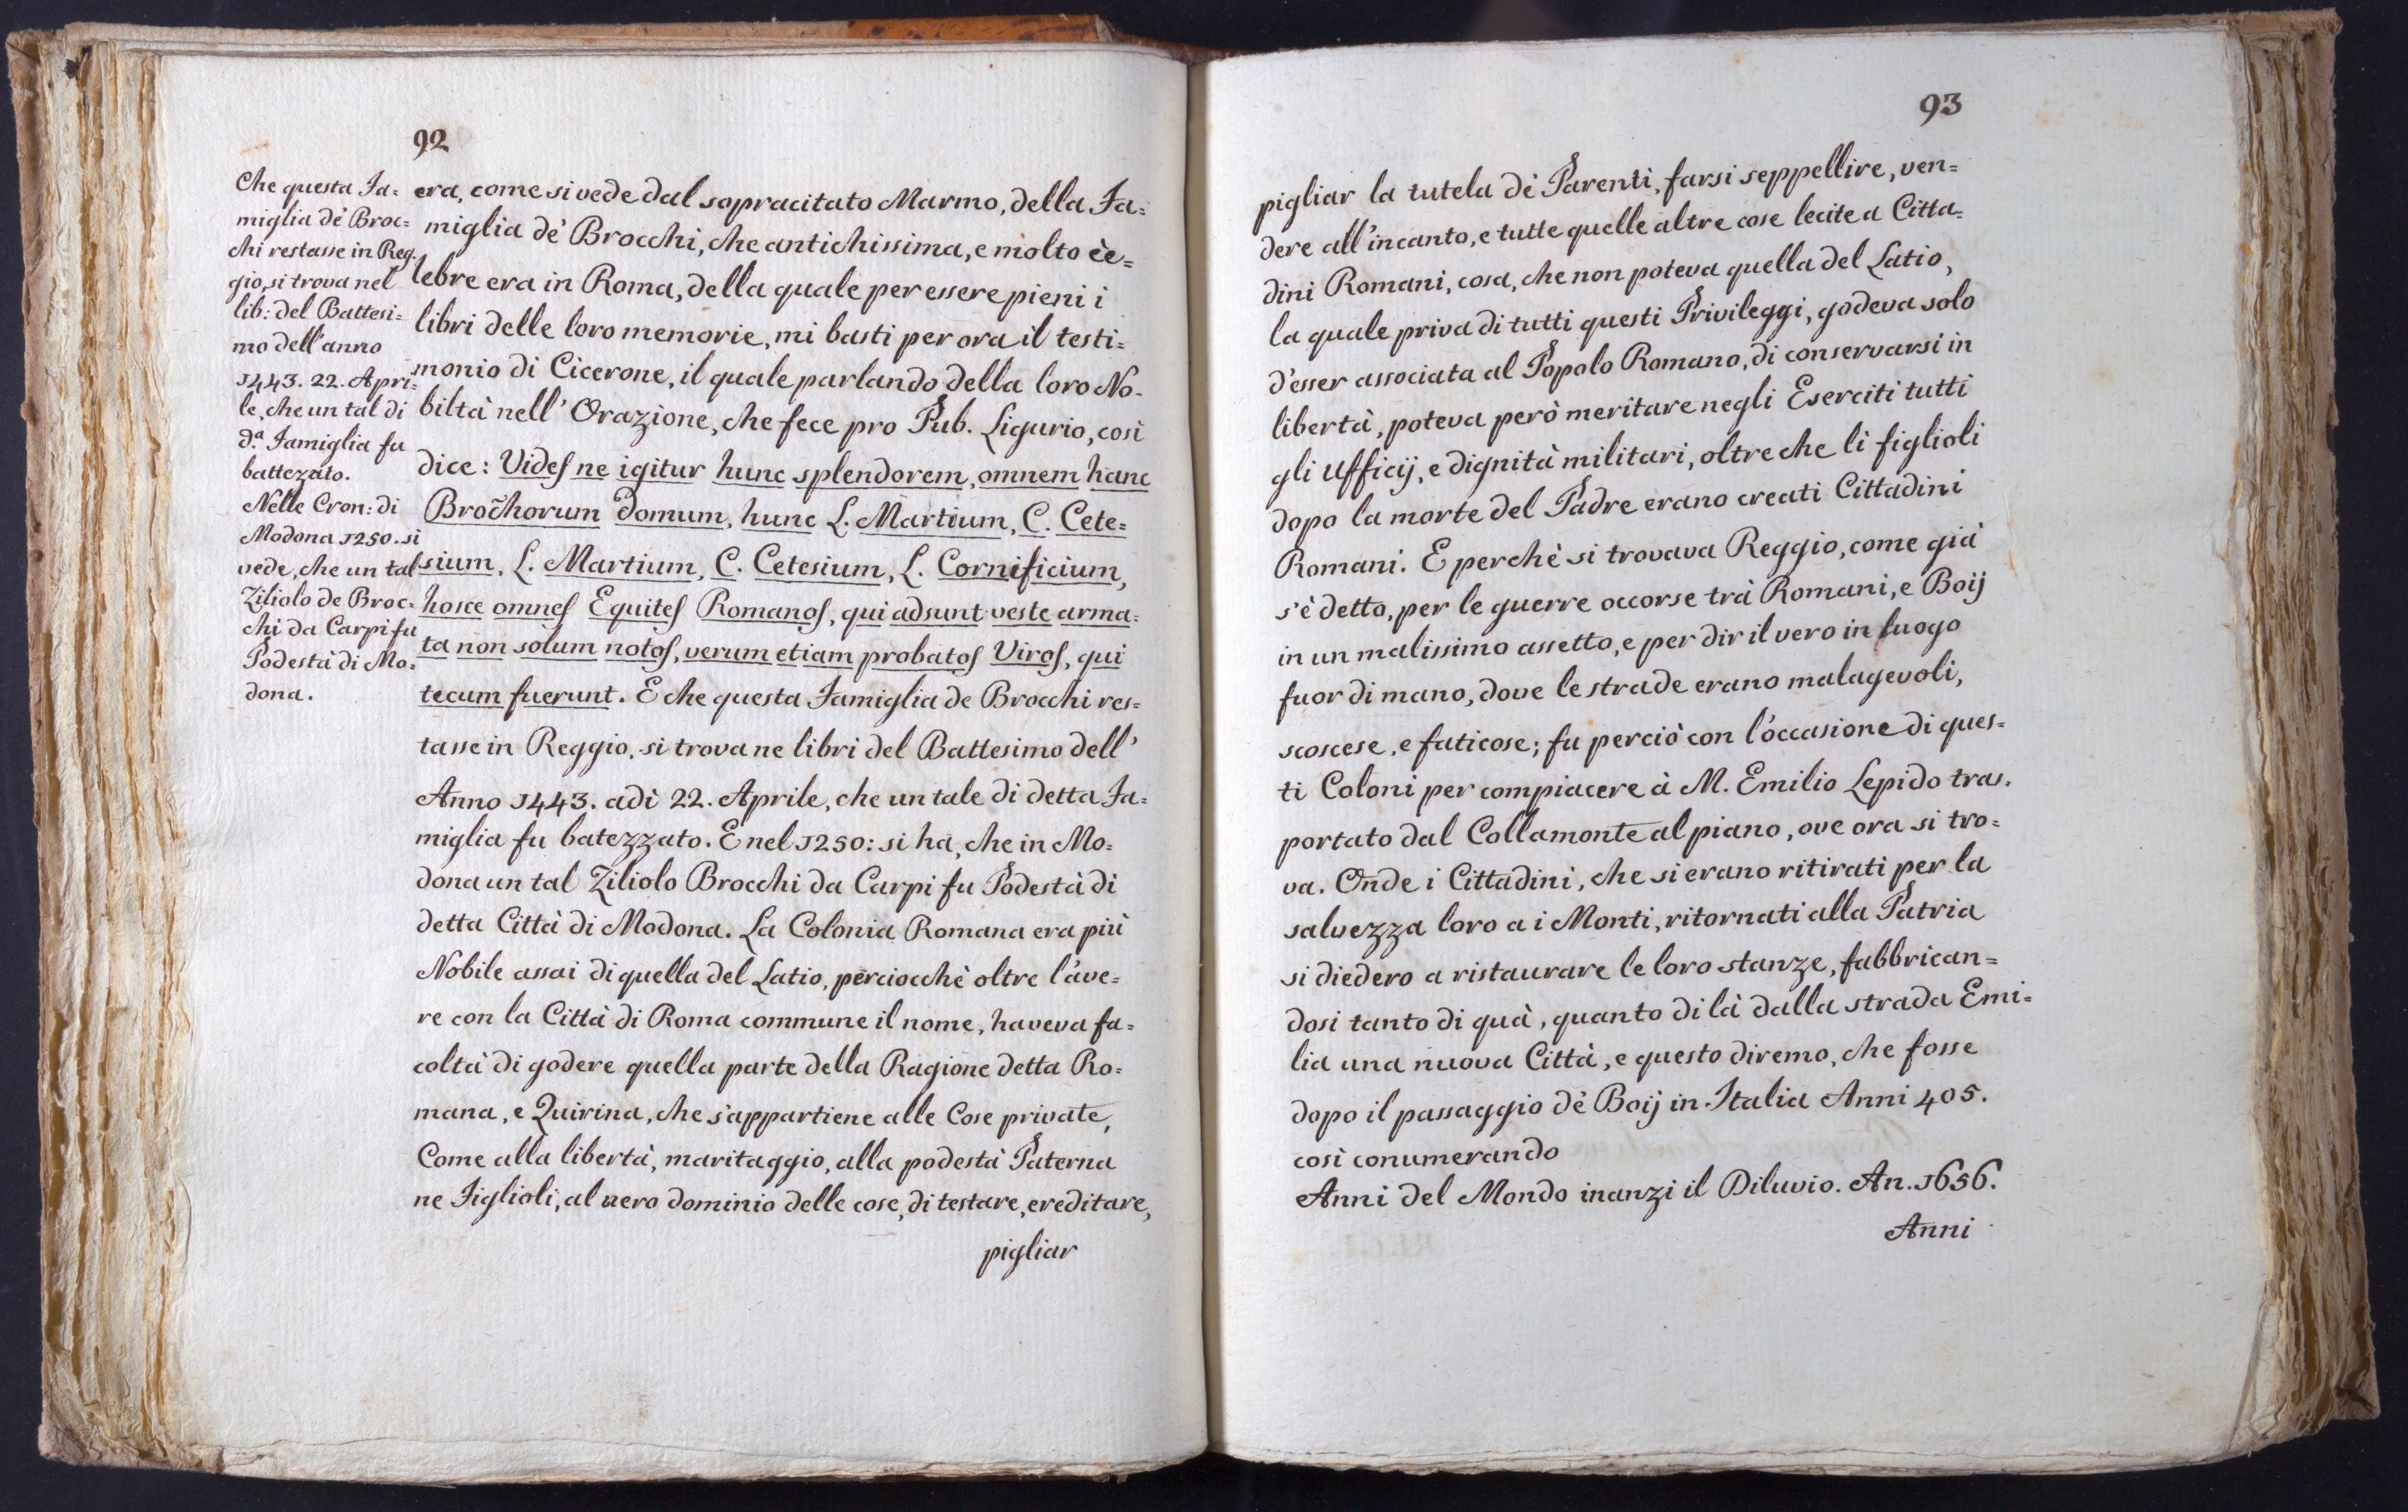 92
Che questa Fa=
miglia de' Broc=
chi restasse in Reg.
gio, si trova nel
lib: del Battesi=
mo dell'anno
1443. 22. Apri=
le, che un tal di
d.ª Famiglia fu
battezato.
Nelle Cron: di
Modona 1250. si
vede, che un tal
Ziliolo de Broc=
chi da Carpi fu
Podestà di Mo=
dona.
era, come si vede dal sopracitato Marmo, della Fa=
miglia de' Brocchi, che antichissima, e molto ce=
lebre era in Roma, della quale per essere pieni i
libri delle loro memorie, mi basti per ora il testi=
monio di Cicerone, il quale parlando della loro No=
biltà nell' Orazione, che fece pro Pub. Ligurio, così
dice: Videſ ne igitur hunc splendorem, omnem hanc
Broc̃horum domum, hunc L. Martium, C. Cete=
sium, L. Martium, C. Cetesium, L. Cornificium,
hosce omneſ Equiteſ Romanoſ, qui adsunt veste arma=
ta non solum notoſ, verum etiam probatoſ Viroſ, qui
tecum fuerunt. E che questa Famiglia de Brocchi res=
tasse in Reggio, si trova ne libri del Battesimo dell'
Anno 1443. adì 22. Aprile, che un tale di detta Fa=
miglia fu batezzato. E nel 1250: si ha, che in Mo=
dona un tal Ziliolo Brocchi da Carpi fu Podestà di
detta Città di Modona. La Colonia Romana era più
Nobile assai di quella del Latio, perciocchè oltre l'ave=
re con la Città di Roma commune il nome, haveva fa=
coltà di godere quella parte della Ragione detta Ro=
mana, e Quirina, che s'appartiene alle Cose private,
Come alla libertà, maritaggio, alla podestà Paterna
ne Figlioli, al vero dominio delle cose, di testare, ereditare,
pigliar
93
pigliar la tutela de' Parenti, farsi seppellire, ven=
dere all'incanto, e tutte quelle altre cose lecite a Citta=
dini Romani, cosa, che non poteva quella del Latio,
la quale priva di tutti questi Privileggi, godeva solo
d'esser associata al Popolo Romano, di conservarsi in
libertà, poteva però meritare negli Eserciti tutti
gli Ufficij, e dignità militari, oltre che li figlioli
dopo la morte del Padre erano creati Cittadini
Romani. E perchè si trovava Reggio, come già
s'è detto, per le guerre occorse trà Romani, e Boij
in un malissimo assetto, e per dir il vero in luogo
fuor di mano, dove le strade erano malagevoli,
scoscese, e faticose; fu perciò con l'occasione di ques=
ti Coloni per compiacere à M. Emilio Lepido tras.
portato dal Collamonte al piano, ove ora si tro=
va. Onde i Cittadini, che si erano ritirati per la
salvezza loro a i Monti, ritornati alla Patria
si diedero a ristaurare le loro stanze, fabbrican=
dosi tanto di quà, quanto di là dalla strada Emi=
lia una nuova Città, e questo diremo, che fosse
dopo il passaggio de' Boij in Italia Anni 405.
così conumerando
Anni del Mondo inanzi il Diluvio. An. 1656.
Anni